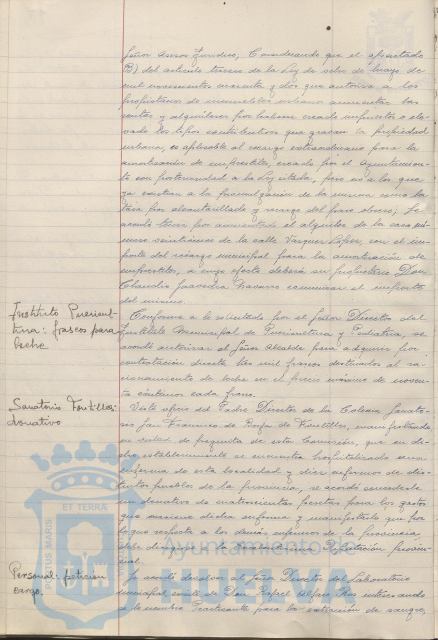 Señor Asesor Jurídico, Considerando que el apartado
B) del artículo tercero de la Ley de ocho de mayo de
mil novecientos cuarenta y dos que autoriza a los
propietarios de inmuebles urbanos aumentar las
rentas y alquileres por haberse creado impuestos o ele-
vado los tipos contributivos que gravan la propiedad
urbana, es aplicable al recargo extraordinario para la
amortización de empréstito, creado por el Ayuntamien-
to con posterioridad a la Ley citada, pero no a los que
ya existían a la promulgación de la misma como la
tasa por alcantarillado y recargo del paro obrero; Se
acordó tener por aumentado el alquiler de la casa nú-
mero veintiuno de la calle Vázquez López, con el im-
porte del recargo municipal para la amortización de
empréstito, a cuyo efecto deberá su propietario Don
Claudio Saavedra Navarro comunicar el importe
del mismo.
Instituto Puericul-
tura: frascos para
leche
Conforme a lo solicitado por el Señor Director del
Instituto Municipal de Puericultura y Pediatría, se
acordó autorizar al Señor Alcalde para adquirir por
contratación directa mil frascos destinados al ra-
cionamiento de leche en el precio máximo de noven-
ta céntimos cada frasco.
Sanatorio Fontilles:
donativo
Visto oficio del Padre Director de la Colonia Sanato-
rio San Francisco de Borja de Fontilles, manifestando
en orden de pregunta de esta Comisión, que en di-
cho establecimiento se encuentra hospitalizado una
enferma de esta localidad y diez enfermos de dis-
tintos pueblos de la provincia, se acordó concederle
un donativo de cuatrocientas pesetas para los gastos
que ocasione dicha enferma y manifestarle que por
lo que respecta a los demás enfermos de la provincia,
debe dirigirse a la Excma. Diputación provin-
cial.
Personal: petición
cargo.
Se acordó devolver al Señor Director del Laboratorio
municipal oficio de Don Rafael interesando
se le nombre Practicante para la extracción de sangre,
ET TERRÆ
PORTUS MARIS
Ayuntamiento de
HUELVA